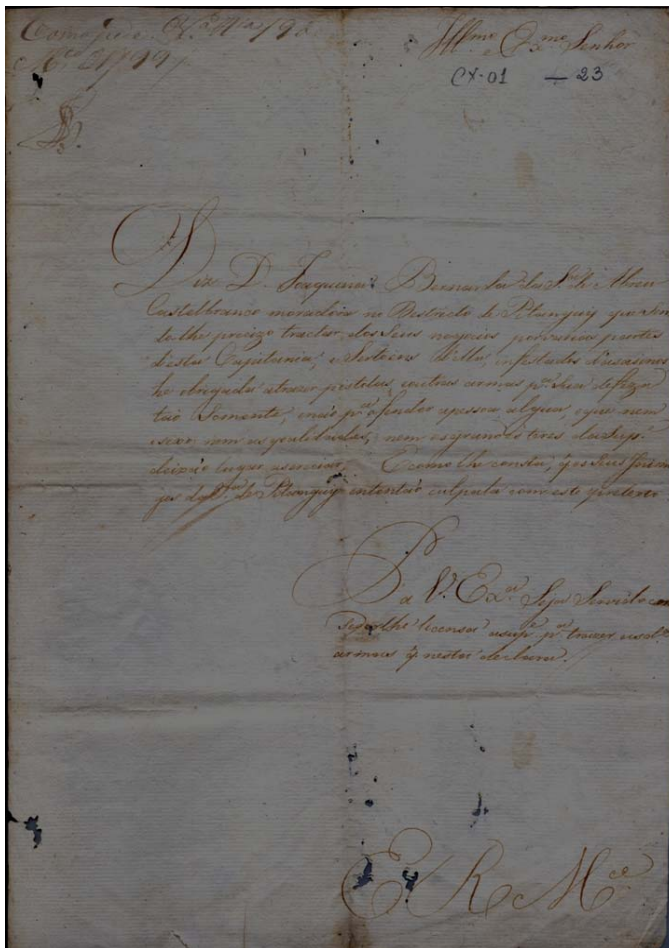 Como pede.
Illmo e Exmo Senhor
CX-01 — 23
Diz D. Joaquina Bernarda da Sa. de Abreu
Castelbranco moradora no Destricto de Pitanguy que sen
dolhe precizo tractar dos Seus negocios por varias partes
desta Capitania, e Sertoens della, infestados
he obrigada atrazer pistolas, eoutras armas pa. Sua defeza
tão Somente, enão pa. ofender apessoa algũa, eque nem
o sexo nem as qualidades, nem os grandes teres da Supe.
deixão lugar Ecomo lhe consta, q̃ os Seus
de Pitanguy intentão culpala com este pretexto
P. a V. Exa. Seja Servido con
sederlhe licensa asupe. pa. trazer, eusar
armas q̃ nesta declara.
E R Mce